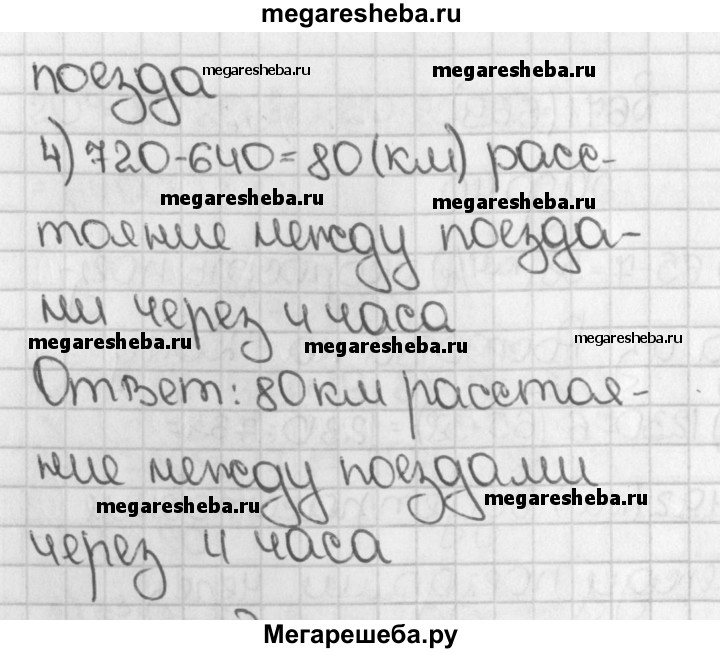 megaresheba.ru
поезда
megaresheba.ru
megaresheba.ru
4) 720-640=80(км) расс-
megaresheba.ru
megaresheba.ru
тояние между поезда-
ми через 4 часа
megaresheba.ru
megaresheba.ru
megaresheba.ru
Ответ: 80 км расстоя-
ние между поездами
megaresheba.ru
megaresheba.ru
через 4 часа
Мегарешеба.ру